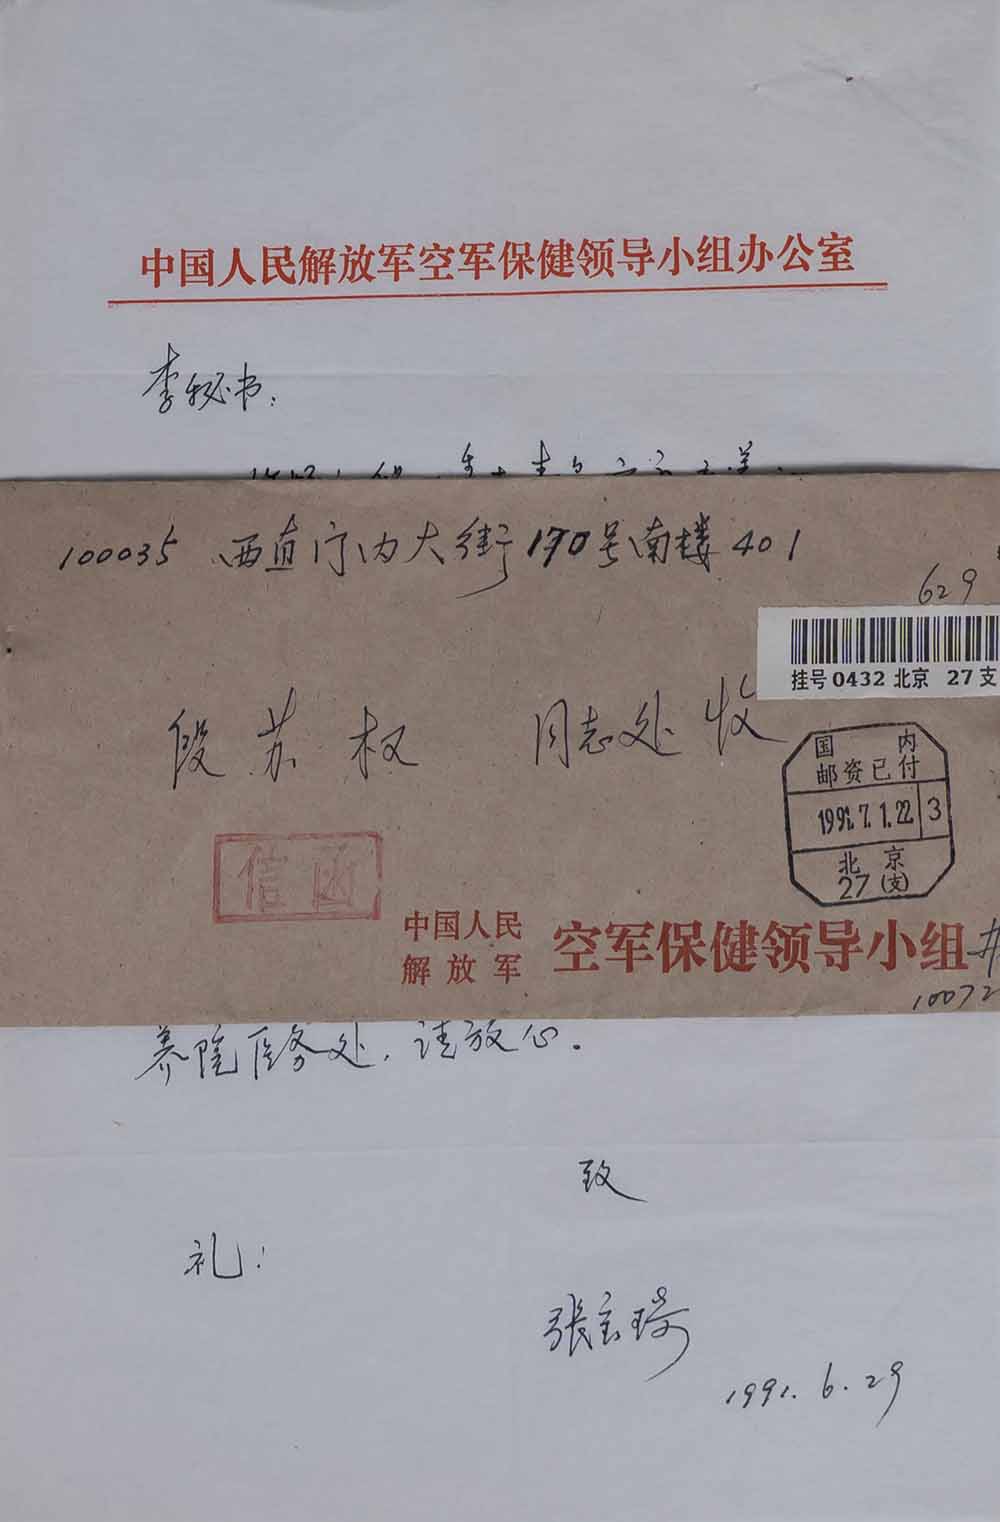 中国人民解放军空军保健领导小组办公室
李秘书：
100035 西直门内大街170号南楼401
629
挂号0432 北京 27支
段苏权 同志处收
国内
邮资已付
1991.7.1.22 3
北京
27(支)
信函
中国人民
解放军
空军保健领导小组
10072
养院医务处，请放心。
致
礼！
1991.6.29